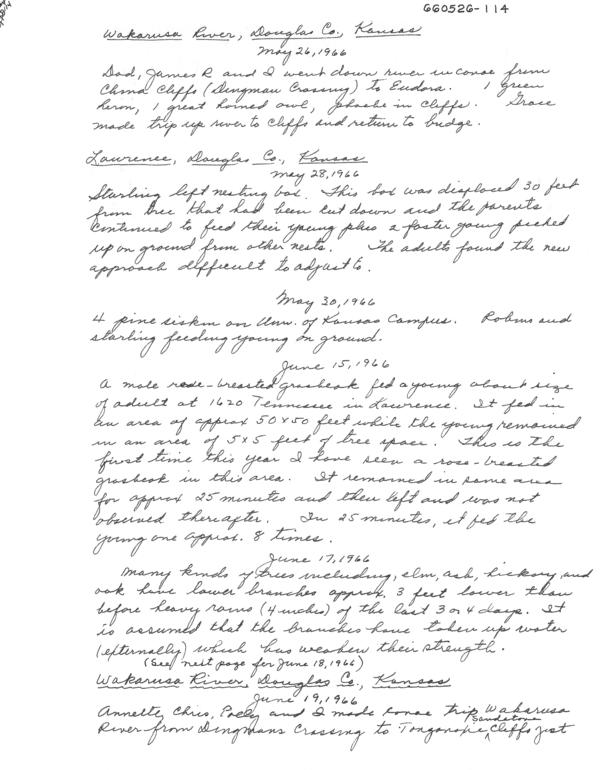 660526-114
Wakarusa River, Douglas Co., Kansas
May 26, 1966
Dad, James R and I went down river in canoe from
China Cliffs (Dingman Crossing) to Eudora. 1 green
heron, 1 great horned owl, phoebe in cliffs. Grace
made trip up river to cliffs and return to bridge.
Lawrence, Douglas Co., Kansas
May 28, 1966
Starling left nesting box. This box was displaced 30 feet
from tree that had been cut down and the parents
continued to feed their young plus a foster young picked
up on ground from other nests. The adults found the new
approach difficult to adjust to.
May 30, 1966
4 pine siskin on Univ. of Kansas Campus. Robins and
starling feeding young on ground.
June 15, 1966
A male rose-breasted grosbeak fed a young about size
of adult at 1620 Tennessee in Lawrence. It fed in
an area of approx 50x50 feet while the young remained
in an area of 5x5 feet of tree space. This is the
first time this year I have seen a rose-breasted
grosbeak in this area. It remained in same area
for approx 25 minutes and then left and was not
observed thereafter. In 25 minutes, it fed the
young one approx. 8 times.
June 17, 1966
Many kinds of trees including, elm, ash, hickory, and
oak have lower branches approx. 3 feet lower than
before heavy rains (4 inches) of the last 3 or 4 days. It
is assumed that the branches have taken up water
(externally) which has weaken their strength.
(See next page for June 18, 1966)
Wakarusa River, Douglas Co., Kansas
June 19, 1966
Annette, Chris, and I made canoe trip Wakarusa
River from Dingmans Crossing to Tonganoxie Sandstone Cliffs just